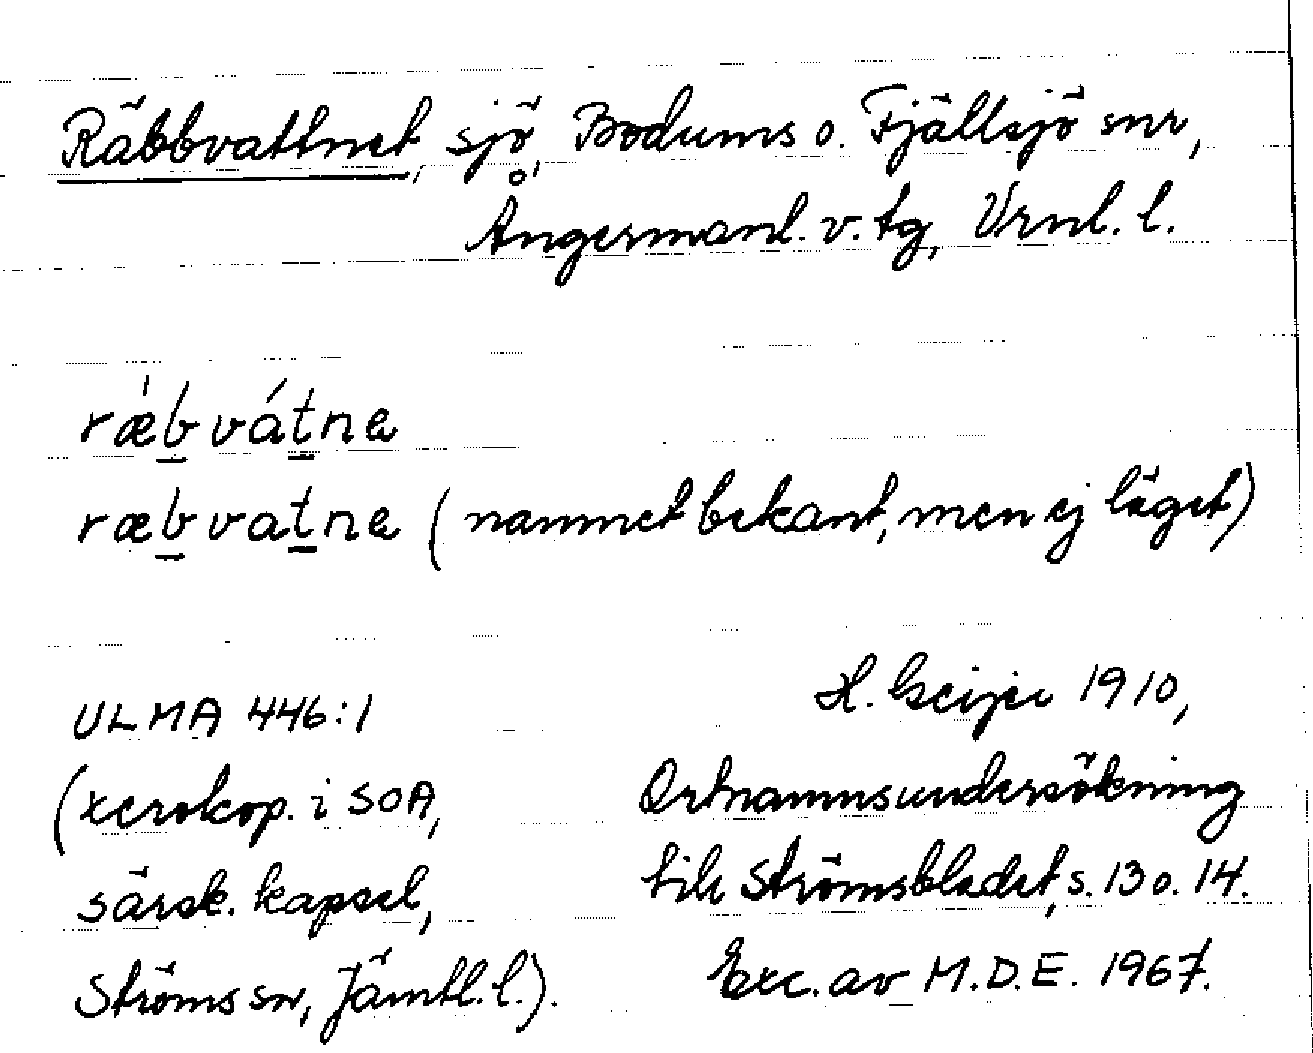 Räbbvattnet, sjö, Bodums o. Fjällsjö snr,
Ångermanl. v. tg, Vrnl. l.
ræ̍b vátna
ræb vatna (namnet bekant, men ej läget)
ULMA 446:1
(xerokop. i SOA,
särsk. kapsel,
Ströms sn, Jämtl. l.).
H. Geijer 1910,
Ortnamnsundersökning
till Strömsbladet, s. 13 o. 14.
Exc. av M.D.E. 1967.